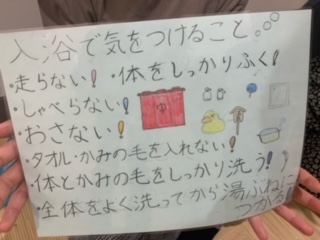 入浴で気をつけること。
・走らない! ・体をしっかりふく!
・しゃべらない!
ゆ
・おさない!
・タオル・かみの毛を入れない!
・体とかみの毛をしっかり洗う!
・全体をよく洗ってから湯ぶねに
つかる!